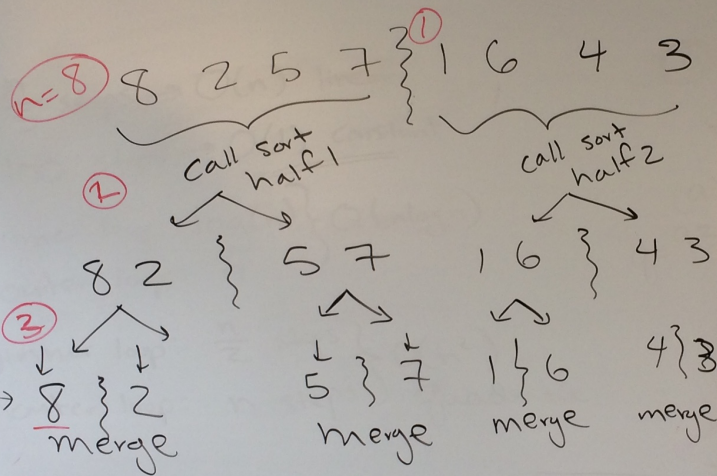 ①
n=8 8 2 5 7 } 1 6 4 3
call sort half1
call sort half2
②
8 2 } 5 7 1 6 } 4 3
③
8 } 2 5 } 7 1 } 6 4 } 3
merge merge merge merge